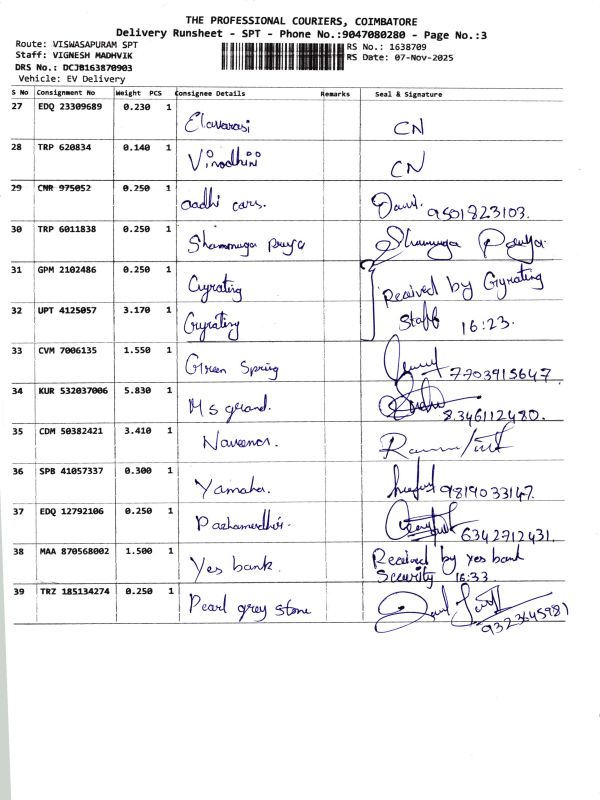 THE PROFESSIONAL COURIERS, COIMBATORE
Delivery Runsheet - SPT - Phone No.:9047080280 - Page No.:3
Route: VISWASAPURAM SPT
RS No.: 1638709
Staff: VIGNESH MADHVIK
RS Date: 07-Nov-2025
DRS No.: DCJB163870903
Vehicle: EV Delivery
S No Consignment No Weight PCS Consignee Details Remarks Seal & Signature
27 EDQ 23309689 0.230 1 Elavarasi CN
28 TRP 620834 0.140 1 Vinodhini CN
29 CNR 975052 0.250 1 aadhi cars. 9501823103.
30 TRP 6011838 0.250 1 Shanmuga Priya
31 GPM 2102486 0.250 1 Gyrating Received by Gyrating
32 UPT 4125057 3.170 1 Gyrating Staff 16:23.
33 CVM 7006135 1.550 1 Green Spring 7703915647.
34 KUR 532037006 5.830 1 Ms grand. 8346112480.
35 CDM 50382421 3.410 1
36 SPB 41057337 0.300 1 Yamaha. 9819033147.
37 EDQ 12792106 0.250 1 6342712431.
38 MAA 870568002 1.500 1 Yes bank. Received by yes bank
Security 16:33
39 TRZ 185134274 0.250 1 Pearl grey stone 9323645981